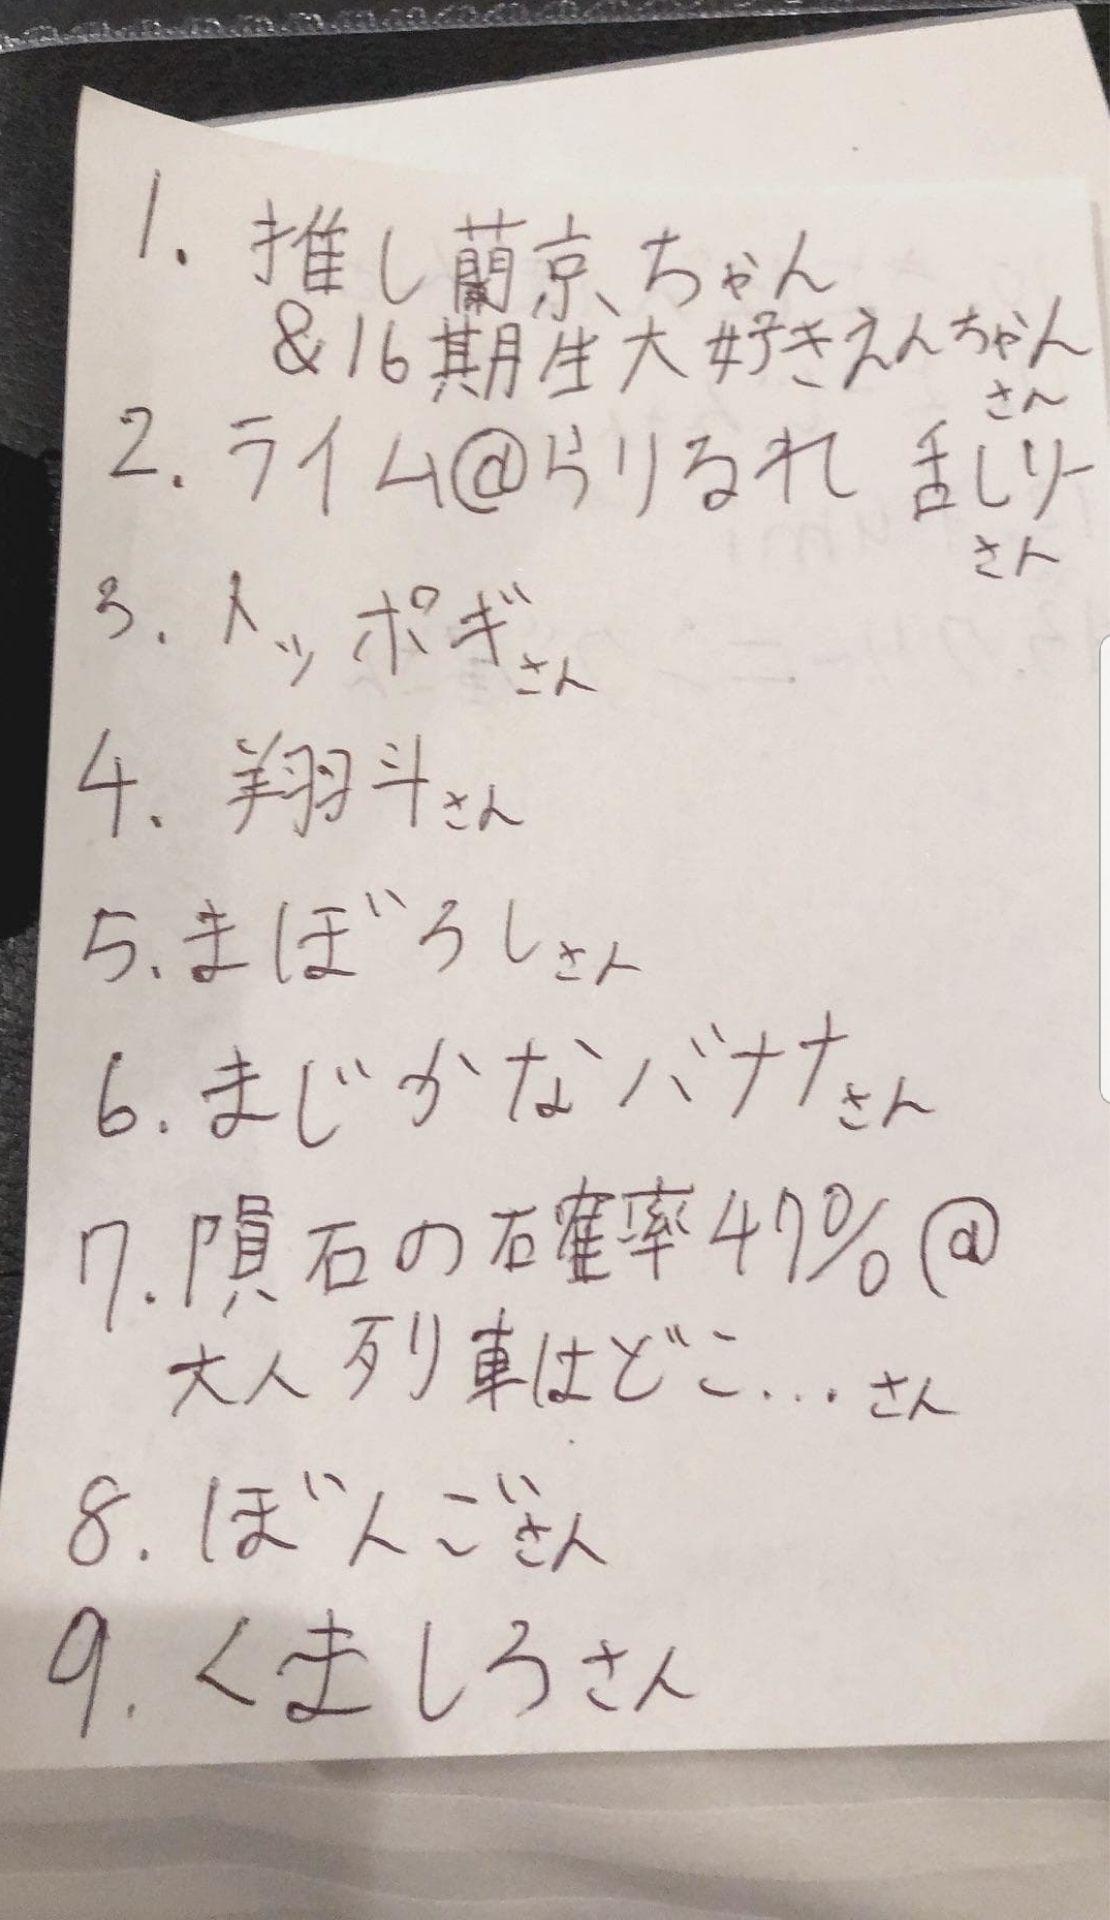 1. 推し蘭京ちゃん
&16期生大好きえんちゃん
さん
2. ライム@らりるれ 乱リー
さん
3. トッポギさん
4. 翔斗さん
5. まぼろしさん
6. まじかなバナナさん
7. 隕石の確率47%@
大人列車はどこ...さん
8. ぼんごさん
9. くましろさん